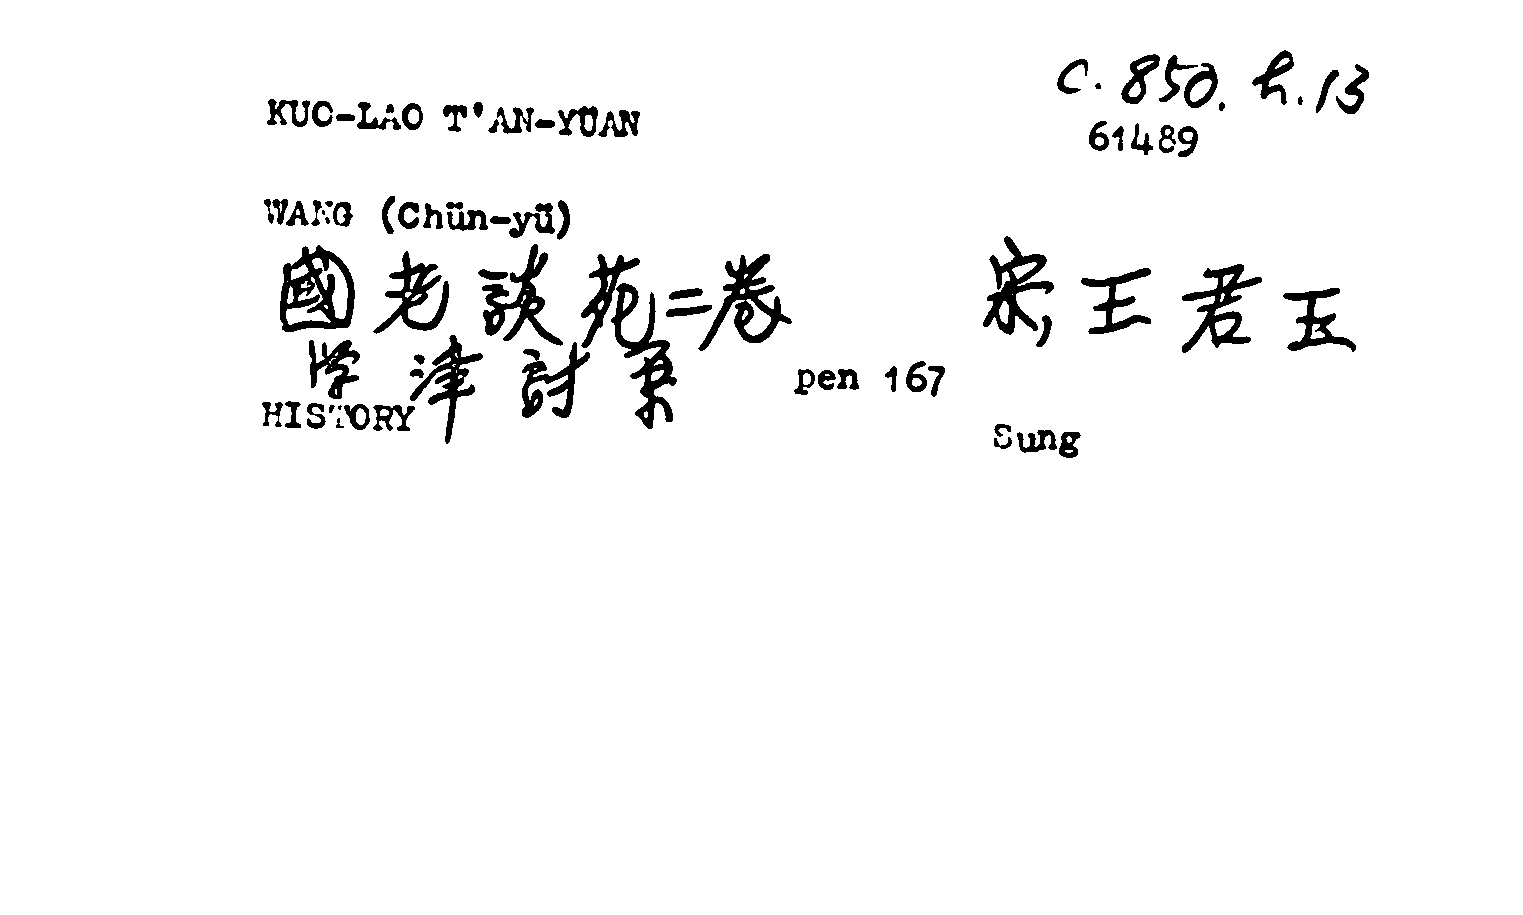 c. 850. h. 13
KUO-LAO T'AN-YÜAN
61489
WANG (Chün-yü)
國老談苑二卷 宋,王君玉
学津討原 pen 167
HISTORY
Sung